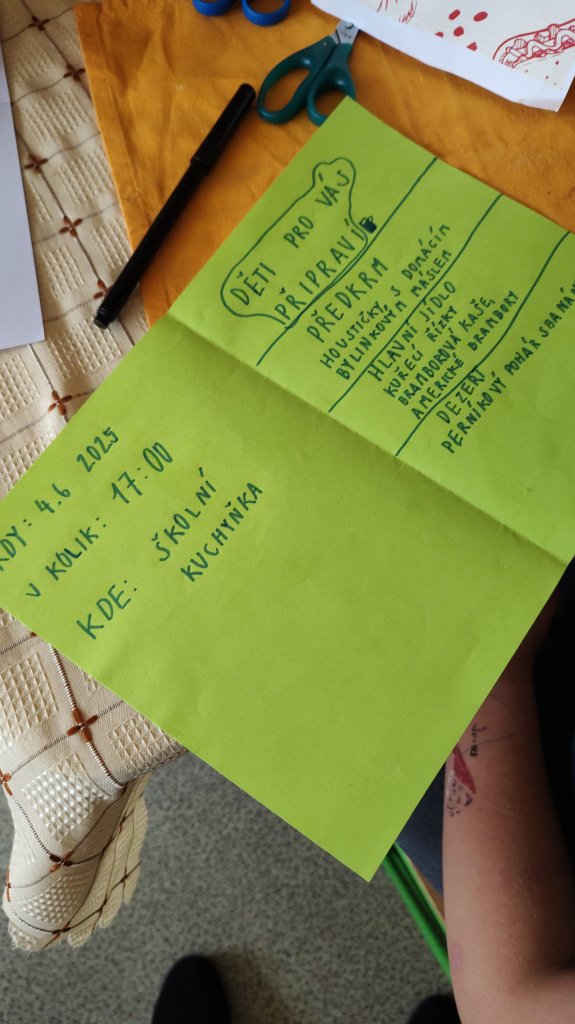 DĚTI PRO VÁS
PŘIPRAVÍ
PŘEDKRM
HOUSTIČKY S DOMÁCÍM
BYLINKOVÝM MÁSLEM
HLAVNÍ JÍDLO
KUŘECÍ ŘÍZKY
BRAMBOROVÁ KAŠE,
AMERICKÉ BRAMBORY
DEZERT
PERNÍKOVÝ POHÁR S
KDY: 4.6 2025
V KOLIK: 17:00
KDE: ŠKOLNÍ
KUCHYŇKA